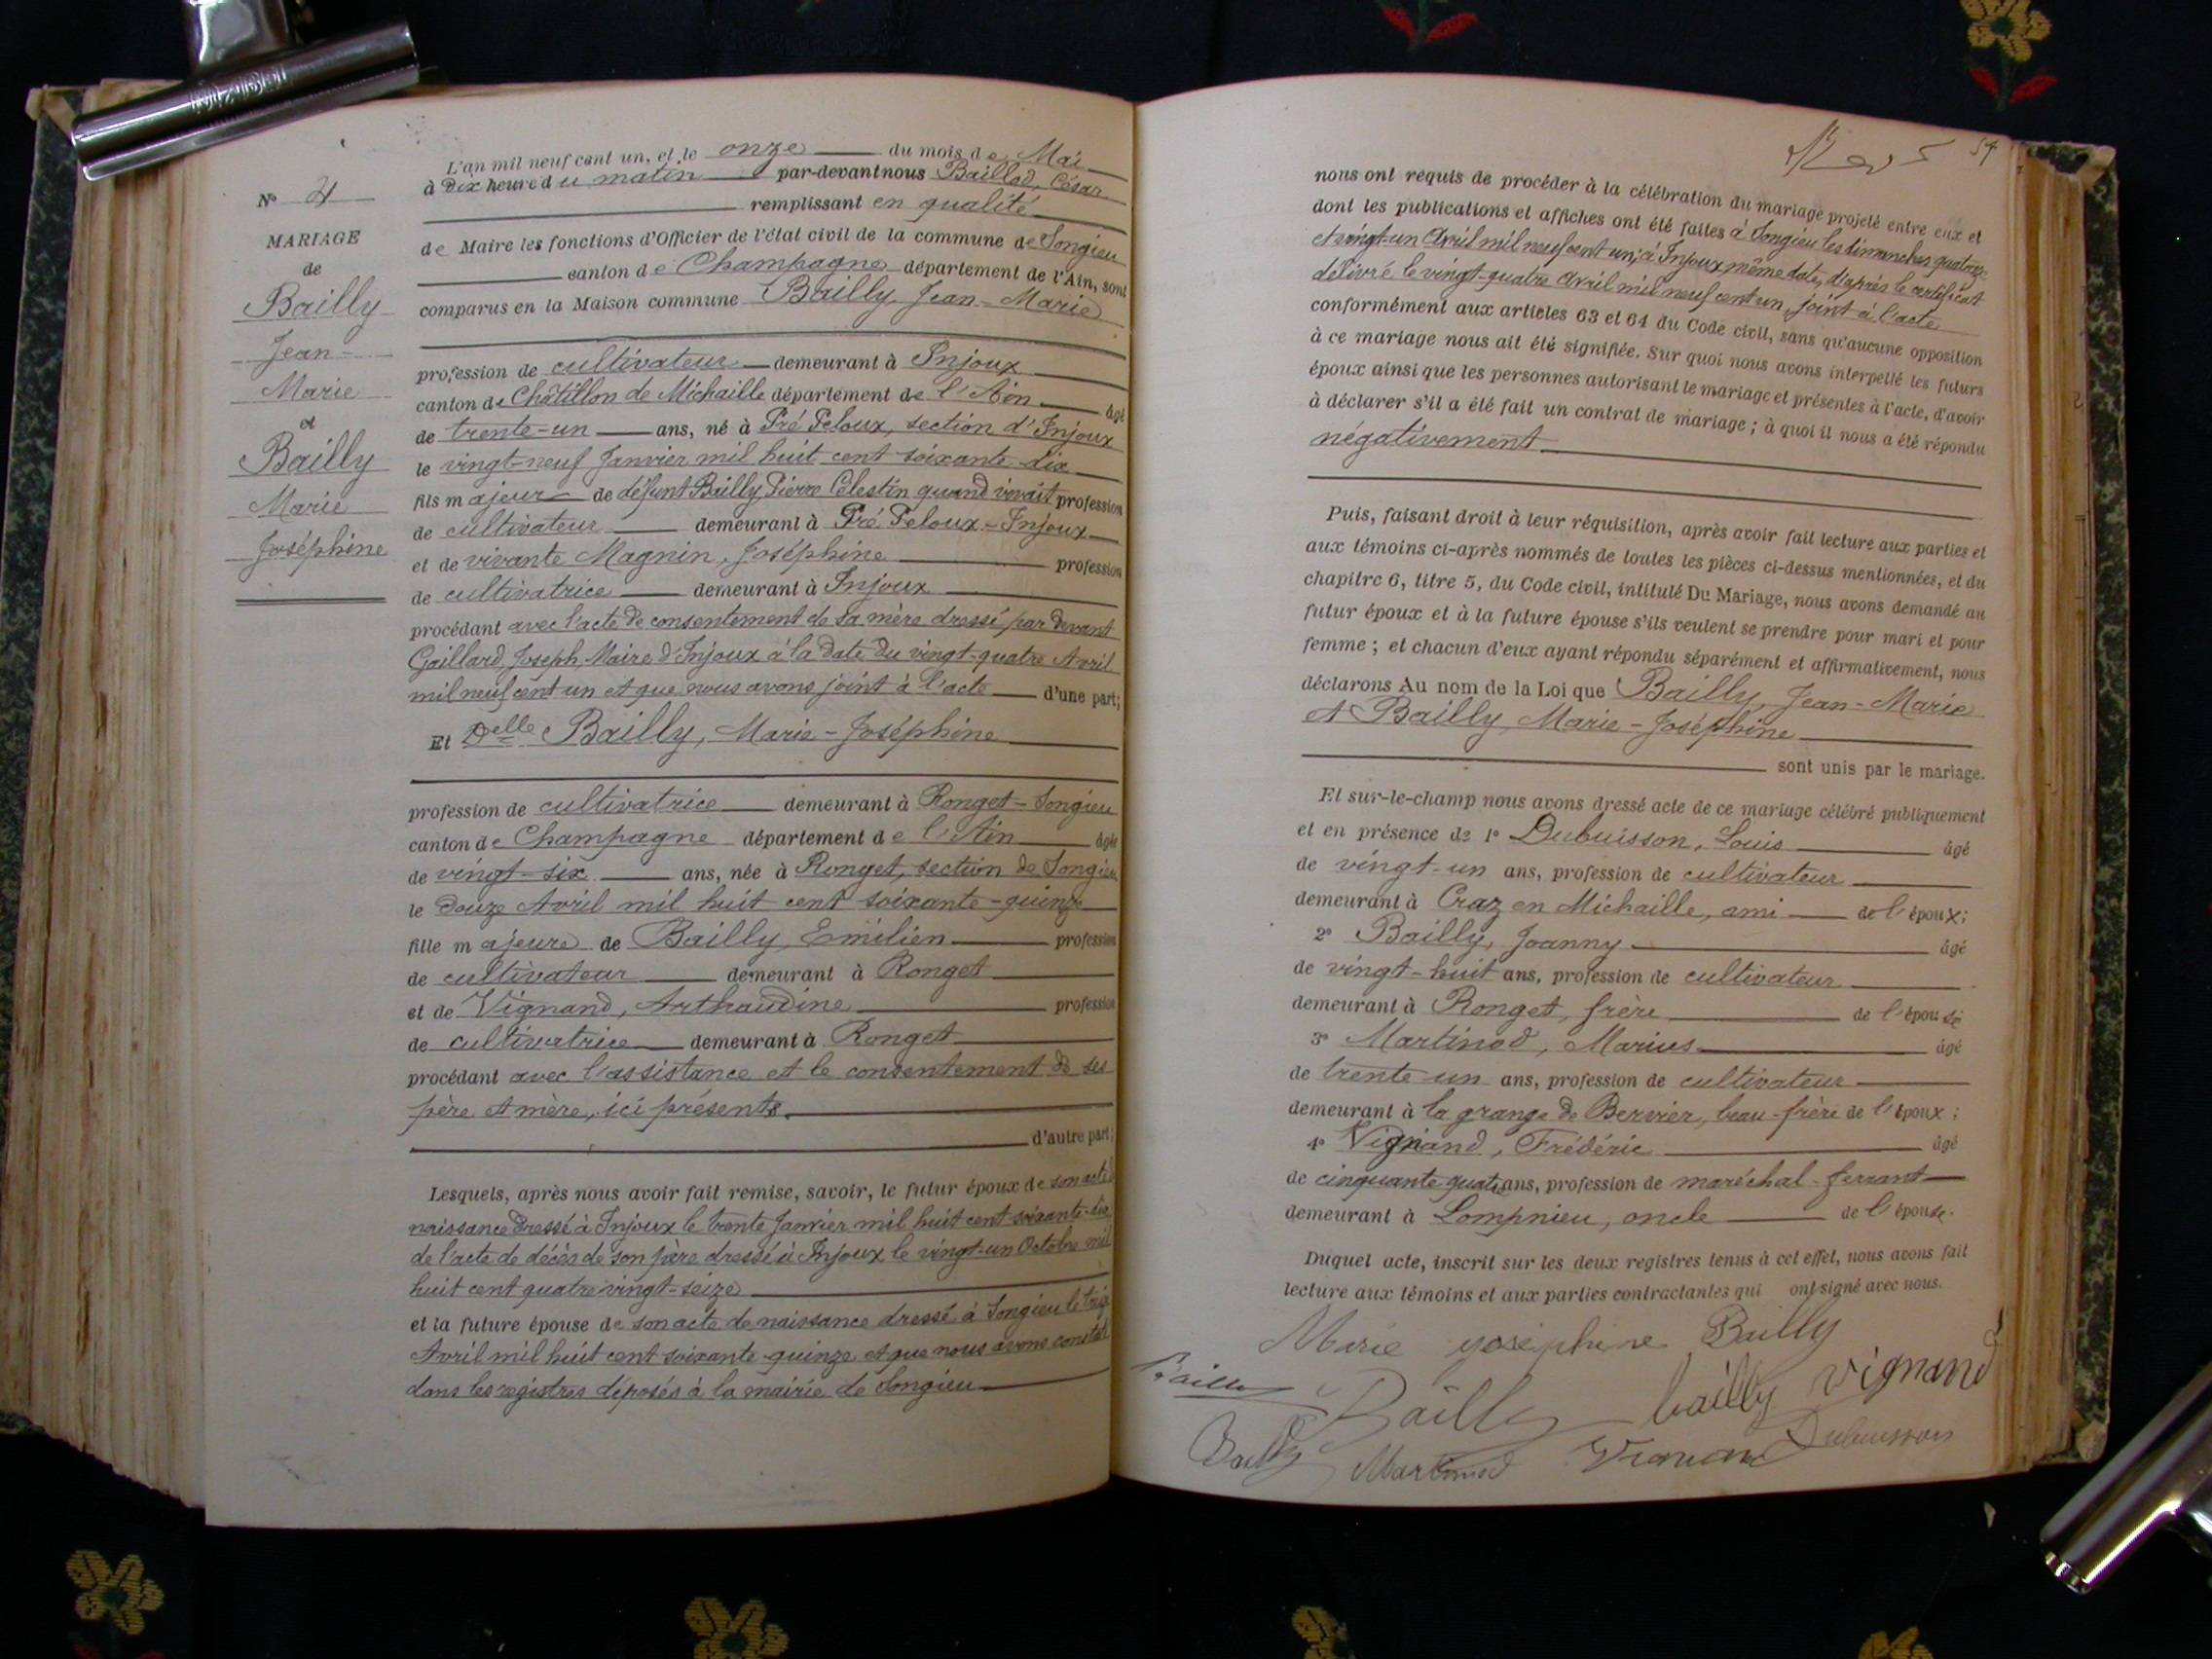 N° 4
MARIAGE
de
Bailly
Jean-
Marie
et
Bailly
Marie
Joséphine
L'an mil neuf cent un, et le onze du mois de Mai
à Dix heure du matin par-devant nous Baillod, César
remplissant en qualité
de Maire les fonctions d'Officier de l'état civil de la commune de Songieu
canton de Champagne département de l'Ain, sont
comparus en la Maison commune Bailly, Jean-Marie
profession de cultivateur demeurant à Injoux
canton de Châtillon de Michaille département de l'Ain âgé
de trente-un ans, né à Pré Peloux, section d'Injoux
le vingt-neuf Janvier mil huit cent soixante-dix
fils majeur de défunt Bailly, Pierre Célestin quand vivait profession
de cultivateur demeurant à Pré Peloux-Injoux
et de vivante Magnin, Joséphine profession
de cultivatrice demeurant à Injoux
procédant avec l'acte de consentement de sa mère dressé par devant
Gaillard, Joseph, Maire d'Injoux à la date du vingt-quatre Avril
mil neuf cent un et que nous avons joint à l'acte d'une part;
Et Delle Bailly, Marie-Joséphine
profession de cultivatrice demeurant à Ronget-Songieu
canton de Champagne département de l'Ain âgée
de vingt-six ans, née à Ronget, section de Songieu
le douze Avril mil huit cent soixante-quinze
fille majeure de Bailly, Emilien profession
de cultivateur demeurant à Ronget
et de Vignand, Arthaudine profession
de cultivatrice demeurant à Ronget
procédant avec l'assistance et le consentement de ses
père et mère, ici présents.
d'autre part;
Lesquels, après nous avoir fait remise, savoir, le futur époux de son acte de
naissance dressé à Injoux le trente Janvier mil huit cent soixante-dix
de l'acte de décès de son père dressé à Injoux le vingt-un Octobre mil
huit cent quatre vingt-seize
et la future épouse de son acte de naissance dressé à Songieu le treize
Avril mil huit cent soixante-quinze et que nous avons constaté
dans les registres déposés à la mairie de Songieu
54
nous ont requis de procéder à la célébration du mariage projeté entre eux et
dont les publications et affiches ont été faites à Songieu les dimanches quatorze
et vingt-un Avril mil neuf cent un; à Injoux même date, d'après le certificat
délivré le vingt-quatre Avril mil neuf cent un, joint à l'acte
conformément aux articles 63 et 64 du Code civil, sans qu'aucune opposition
à ce mariage nous ait été signifiée. Sur quoi nous avons interpellé les futurs
époux ainsi que les personnes autorisant le mariage et présentes à l'acte, d'avoir
à déclarer s'il a été fait un contrat de mariage; à quoi il nous a été répondu
négativement
Puis, faisant droit à leur réquisition, après avoir fait lecture aux parties et
aux témoins ci-après nommés de toutes les pièces ci-dessus mentionnées, et du
chapitre 6, titre 5, du Code civil, intitulé Du Mariage, nous avons demandé au
futur époux et à la future épouse s'ils veulent se prendre pour mari et pour
femme; et chacun d'eux ayant répondu séparément et affirmativement, nous
déclarons Au nom de la Loi que Bailly, Jean-Marie
et Bailly, Marie-Joséphine
sont unis par le mariage.
Et sur-le-champ nous avons dressé acte de ce mariage célébré publiquement
et en présence de 1° Dubuisson, Louis âgé
de vingt-un ans, profession de cultivateur
demeurant à Craz en Michaille, ami de l'époux;
2° Bailly, Joanny âgé
de vingt-huit ans, profession de cultivateur
demeurant à Ronget, frère de l'épouse
3° Martinod, Marius âgé
de trente un ans, profession de cultivateur
demeurant à la grange de Bervier, beau-frère de l'époux;
4° Vignand, Frédéric âgé
de cinquante quatre ans, profession de maréchal-ferrant
demeurant à Lompnieu, oncle de l'épouse.
Duquel acte, inscrit sur les deux registres tenus à cet effet, nous avons fait
lecture aux témoins et aux parties contractantes qui ont signé avec nous.
Marie yoséphine Bailly
Bailly Bailly bailly vignand
Bailly Martinod Vignand Dubuisson